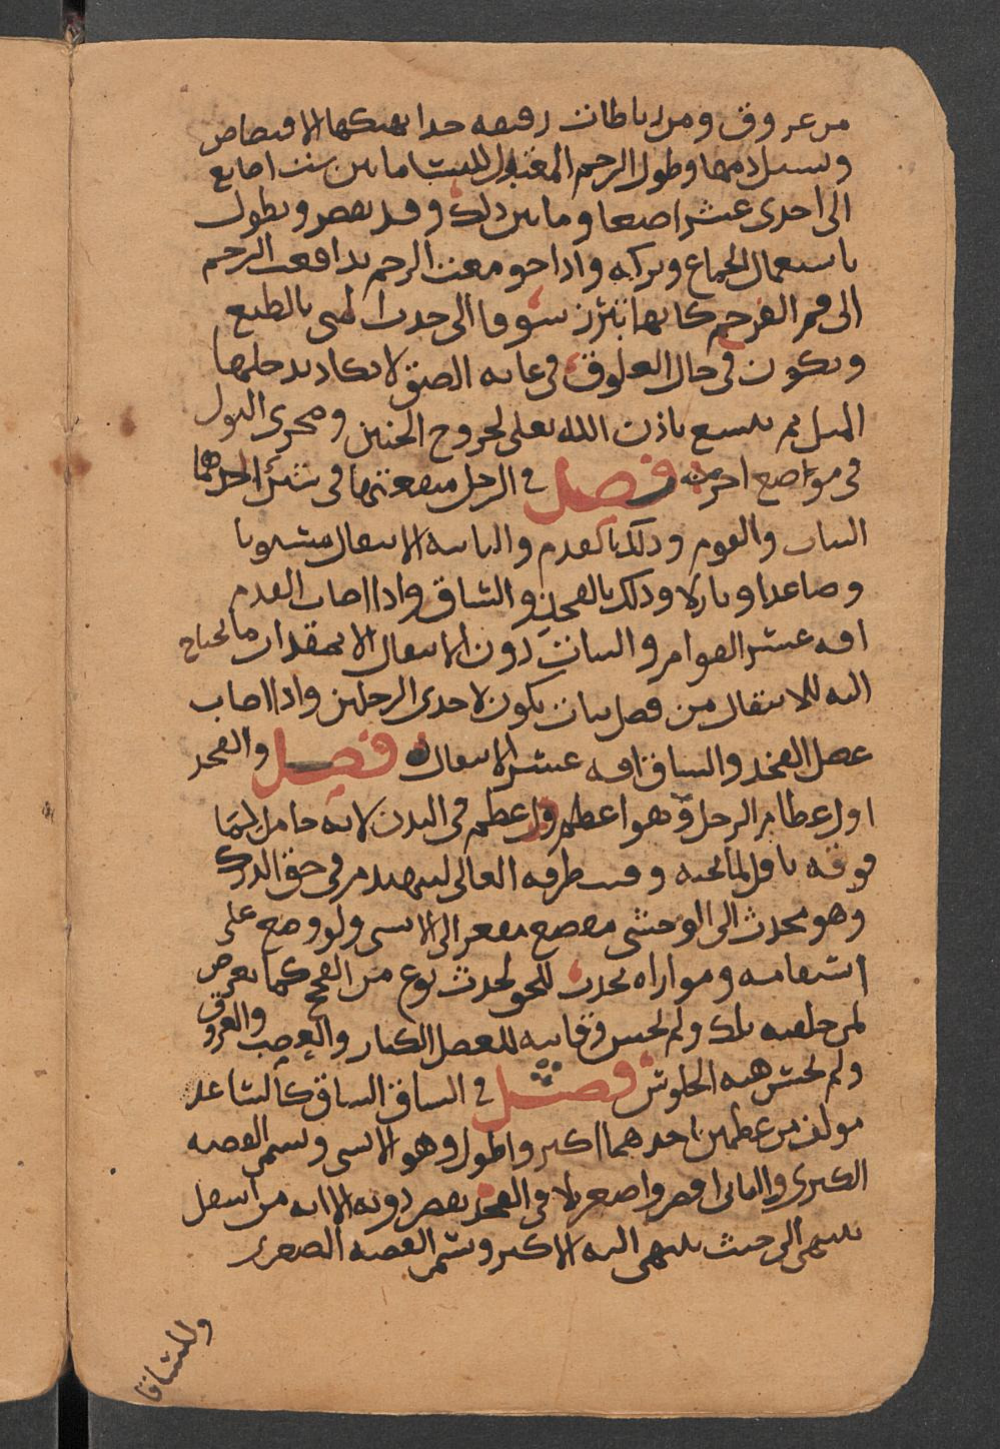 من عروق ومن رباطات رقيقه جدا يهتكها الافتضاض
ويسيل دمها وطول الرحم المعتدل للنسا ما بين ست اصابع
الى احدى عشر اصبعا وما بين ذلك وقد يقصر ويطول
باستعمال الجماع وتركه واذا جومعت الرحم تدافعت الرحم
الى فم الفرج كانها تبرز شوقا الى جذب المني بالطبع
ويكون في حال العلوق في غايه الضيق لا يكاد يدخلها
الميل ثم يتسع باذن الله تعلى لخروج الجنين ومجرى البول
في مواضع اخر منه فصل في الرجل منفعتها في شيئين احدهما
الثبات والقوام وذلك بالقدم والثانيه الانتقال مستويا
وصاعدا ونازلا وذلك بالفخذ والساق واذا اصاب القدم
افه عسر القوام والثبات دون الانتقال الا بمقدار ما يحتاج
اليه للانتقال من فضل ثبات يكون لاحدى الرجلين واذا اصاب
عضل الفخذ والساق افه عسر الانتقال فصل والفخذ
اول عظام الرجل وهو اعظم عظم في البدن لانه حامل لما
فوقه ناقل لما تحته وقبب طرفه العالي ليتهندم في حق الورك
وهو محدب الى الوحشي مقعر الى الانسي ولو وضع على
استقامه وموازاه لحدث نوع من الفحج كما يعرض
لمن خلقته تلك ولم تحسن وقايته للعضل الكبار والعصب والعروق
ولم تحسن هيه الجلوس فصل في الساق الساق كالساعد
مولف من عظمين احدهما اكبر واطول وهو الانسي ويسمى القصبه
الكبرى والثاني اقصر واصغر لا يلاقي الفخذ يقصر دونه الا انه من اسفل
ينتهي الى حيث ينتهي اليه الاكبر ويسمى القصبه الصغرى
وللساق